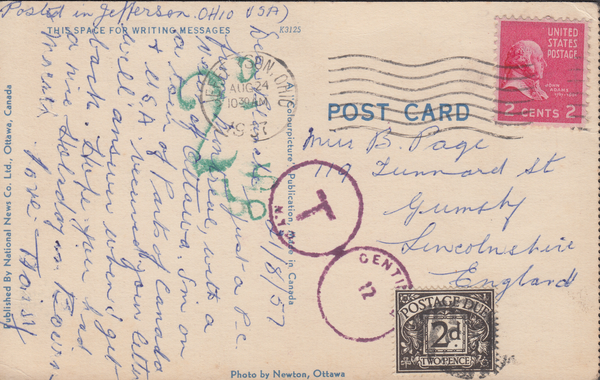 Posted in Jefferson. OHIO USA)
THIS SPACE FOR WRITING MESSAGES
K3125
POST CARD
UNITED
STATES
POSTAGE
JOHN
ADAMS
2 CENTS 2
JEFFERSON, OHIO
AUG 24
10 30 AM
Miss B. Page
119 Tunnard St
Grimsby
Lincolnshire
England
T
N.Y.
CENTI
12
POSTAGE DUE
2d.
TWOPENCE
/8/57
Just a P.C.
with a
of Ottawa. I'm on
a tour of Parts of Canada
& USA received your letter
will answer when I get
back. Hope you had
a nice Holiday in
Love Daisy
Published By National News Co. Ltd., Ottawa, Canada
Colourpicture Publication, Made in Canada
Photo by Newton, Ottawa